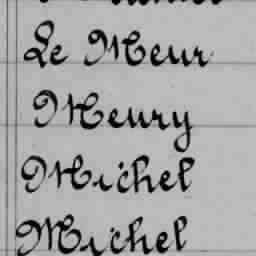 Le Meur
Meury
Michel
Michel